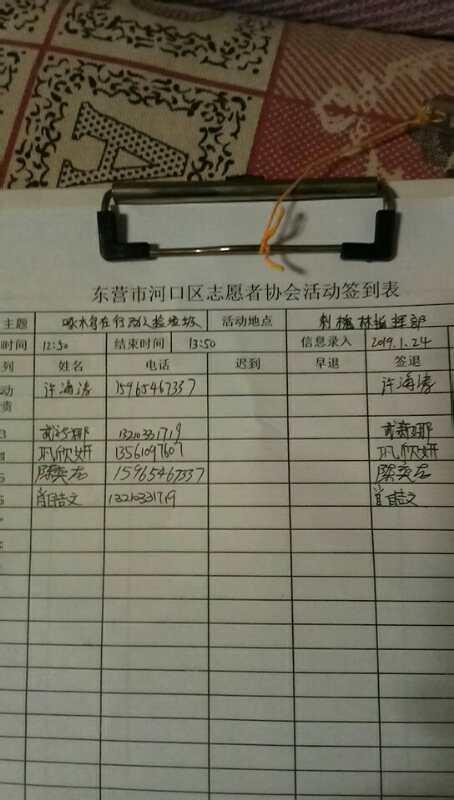 A
东营市河口区志愿者协会活动签到表
主题 啄木鸟在行动之捡垃圾 活动地点 刺槐林
时间 12:50 结束时间 13:50 信息录入 2019.1.24
列 姓名 电话 迟到 早退 签退
动 许海涛 15965467337 许海涛
责
3 13210331719
4 欣妍 13561097607 欣妍
5 奕 15965467337 奕
6 肖皓文 13210331719 肖皓文